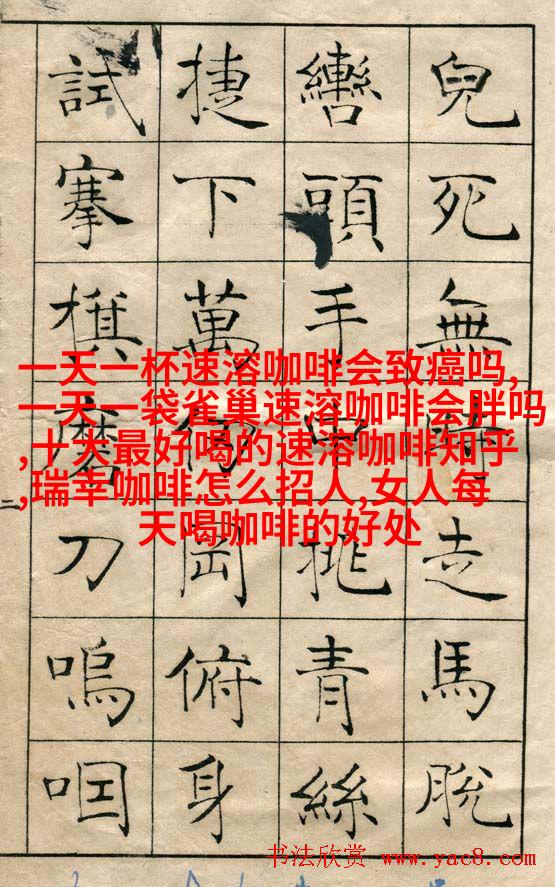 兒死無時走馬脫
轡頭手中挑青絲
捷下萬仞岡俯身
試搴旗磨刀嗚咽
一天一杯速溶咖啡会致癌吗,
一天一袋雀巢速溶咖啡会胖吗
,十大最好喝的速溶咖啡知乎
,瑞幸咖啡怎么招人,女人每
天喝咖啡的好处
书法欣赏 www.yac8.com